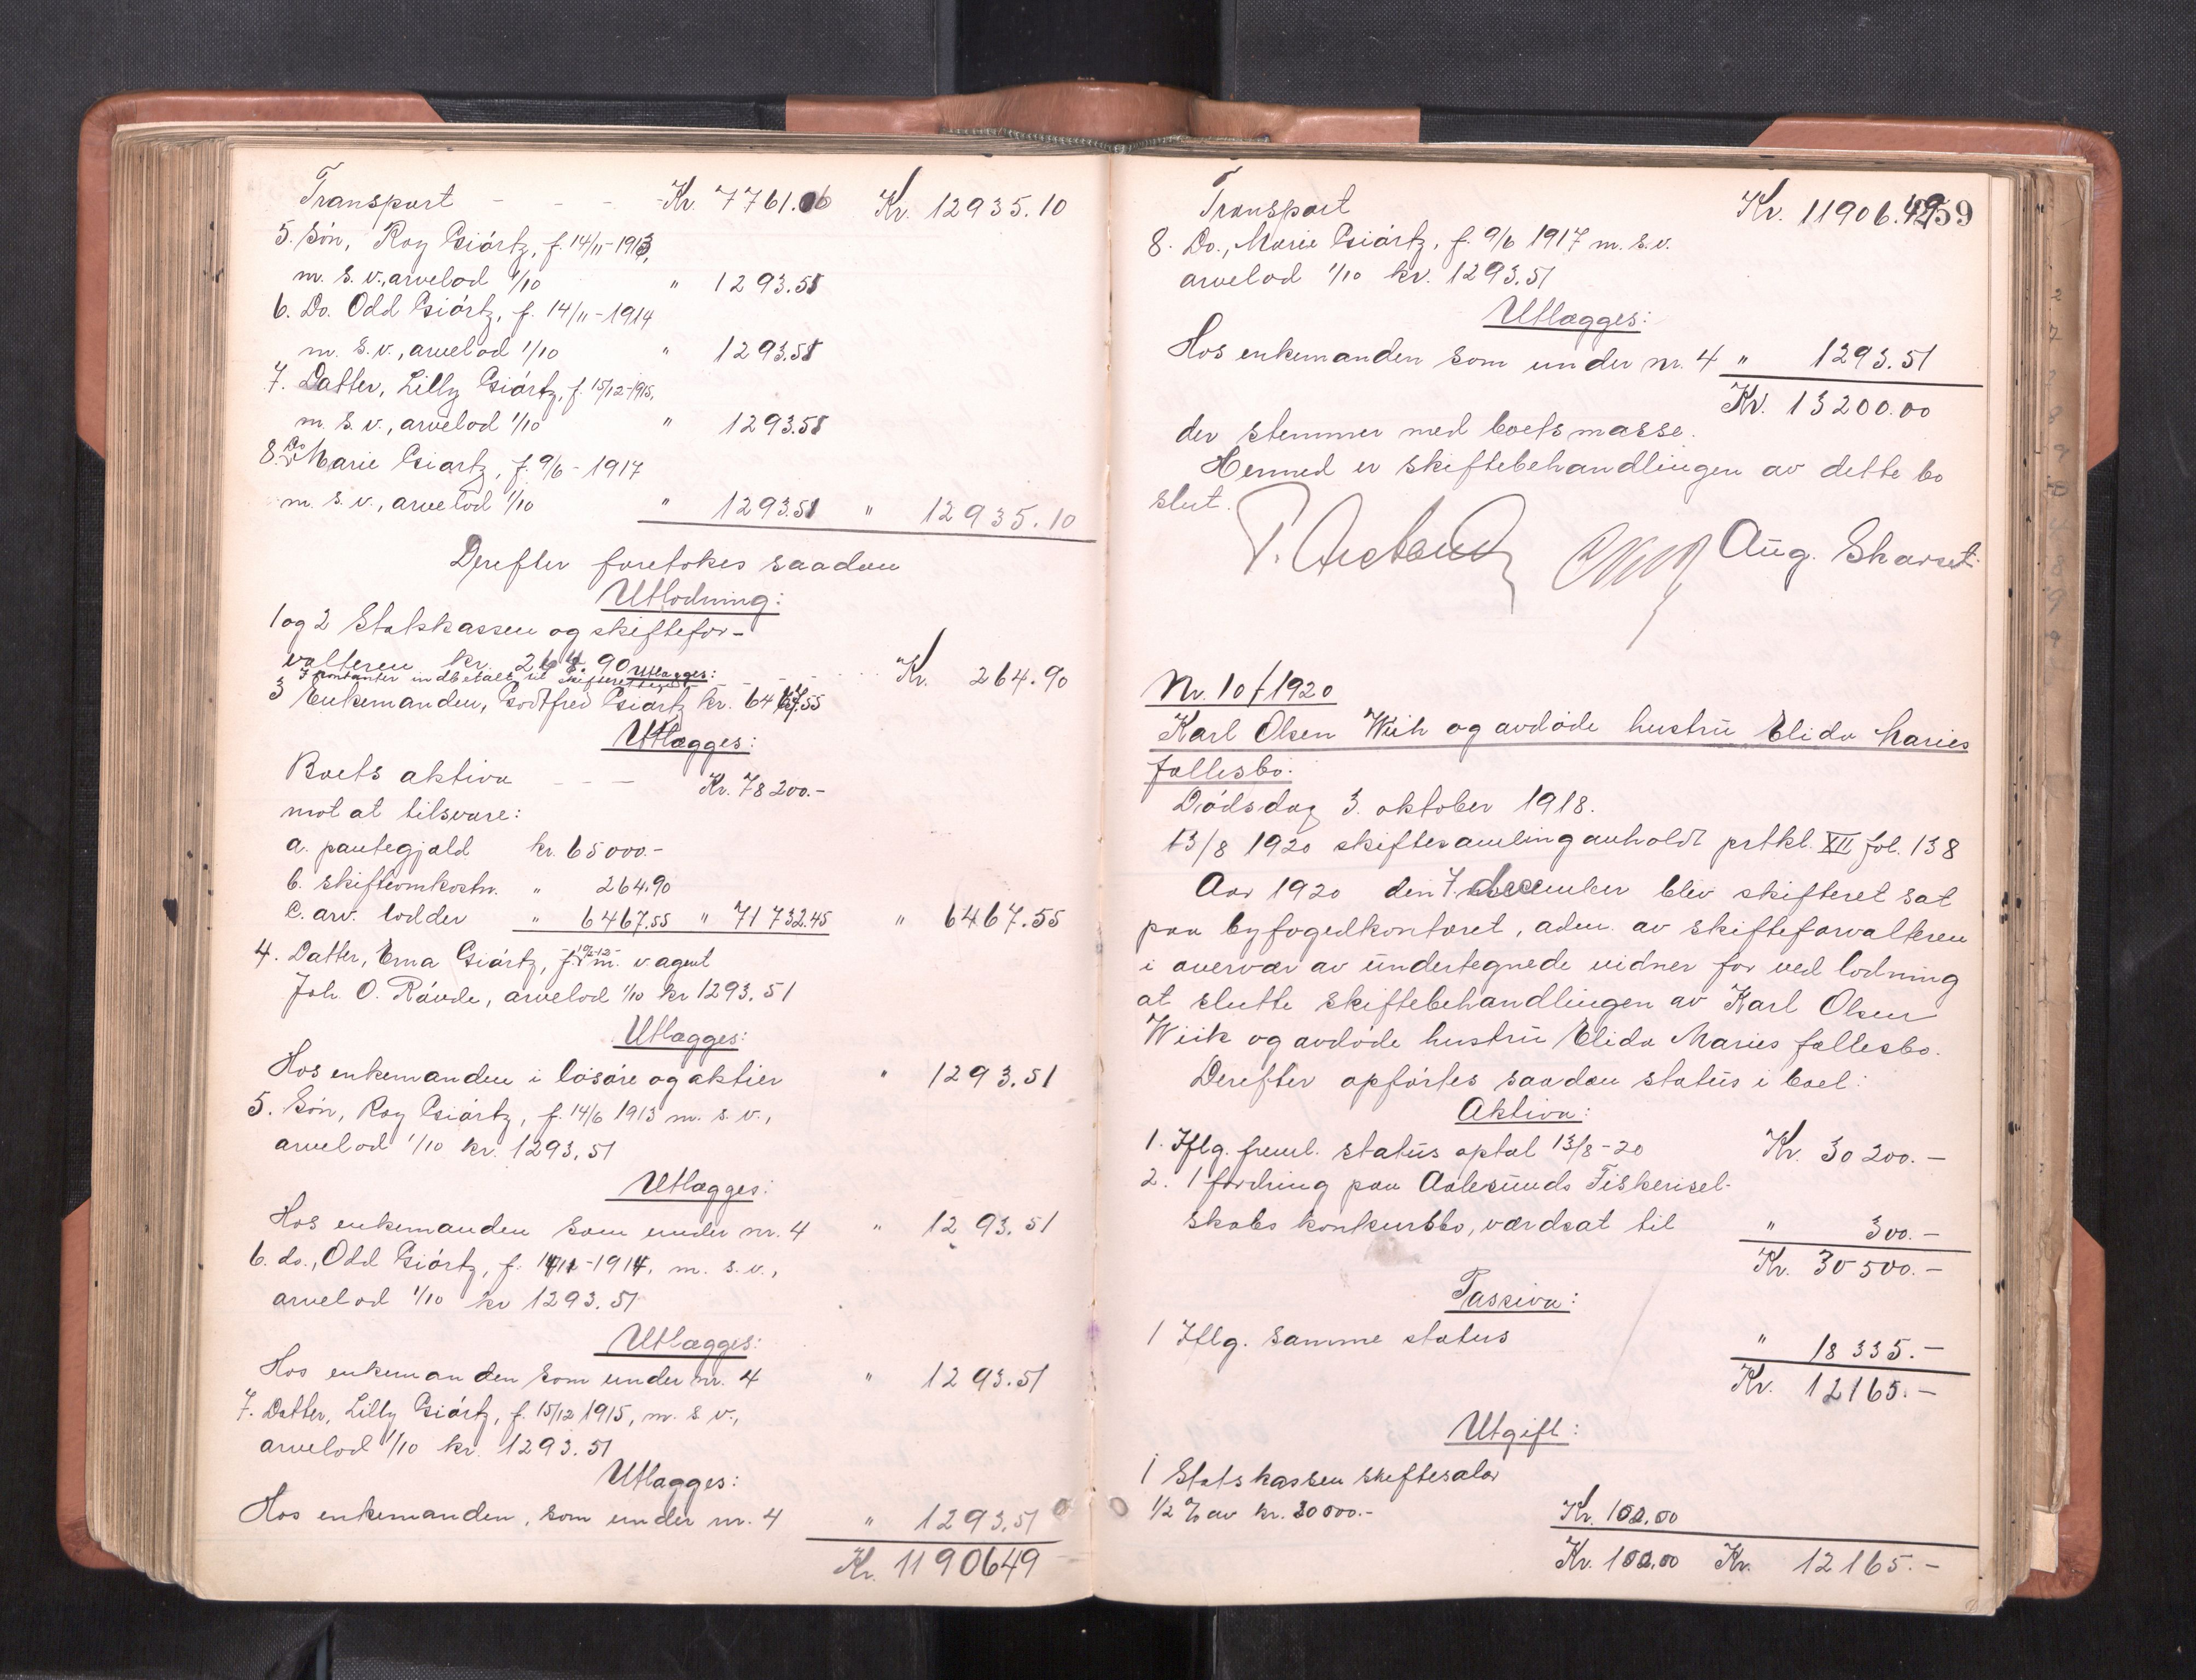 Transport - - - Kr. 7761.06 Kr. 12935.10
5. Søn, Roy Giørtz, f. 14/11-1913,
m. s. v., arvelod 1/10 " 1293.51
6. Do. Odd Giørtz, f. 14/11-1914
m. s. v., arvelod 1/10 " 1293.51
7. Datter, Lilly Giørtz, f. 15/12-1915,
m. s. v., arvelod 1/10 " 1293.51
8. Do Marie Giørtz, f. 9/6-1917
m. s. v., arvelod 1/10 " 1293.51 " 12935.10
Derefter foretokes saadan
Utlodning:
1 og 2 Statskassen og skiftefor-
valteren kr. 264.90 Utlægges:
I kontanter indbetalt til skifteretten - - - Kr. 264.90
3 Enkemanden, Godtfred Giørtz kr. 6467.55
Utlægges:
Boets aktiva - - - Kr. 78200.-
mot at tilsvare:
a. pantegjæld kr. 65000.-
b. skifteomkostn. " 264.90
c. arv. lodder " 6467.55 " 71732.45 " 6467.55
4. Datter, Erna Giørtz, g. m. agent
Joh. O. Røvde, arvelod 1/10 kr 1293.51
Utlægges:
Hos enkemanden i løsøre og aktier " 1293.51
5. Søn, Roy Giørtz, f. 14/6 1913 m. s. v.,
arvelod 1/10 kr. 1293.51
Utlægges:
Hos enkemanden som under nr. 4 " 1293.51
6. do., Odd Giørtz, f. 14/11-1914, m. s. v.,
arvelod 1/10 kr 1293.51
Utlægges:
Hos enkemanden som under nr. 4 " 1293.51
7. Datter, Lilly Giørtz, f. 15/12 1915, m. s. v.,
arvelod 1/10 kr. 1293.51
Utlægges:
Hos enkemanden, som under nr. 4 " 1293.51
Kr. 1190649
159
Transport Kr. 11906.49
8. Do., Marie Giørtz, f. 9/6 1917 m. s. v.
arvelod 1/10 kr. 1293.51
Utlægges:
Hos enkemanden som under nr. 4 " 1293.51
Kr. 13200.00
der stemmer med boets masse.
Hermed er skiftebehandlingen av dette bo
slut.
Aug. Skarset.
Nr. 10/1920
Karl Olsen Wiik og avdøde hustru Elida Maries
fællesbo.
Dødsdag 3. oktober 1918.
13/8 1920 skiftesamling anholdt prtkl. XII fol. 138
Aar 1920 den 7. december blev skifteret sat
paa byfogedkontoret, adm. av skifteforvalteren
i overvær av undertegnede vidner for ved lodning
at slutte skiftebehandlingen av Karl Olsen
Wiik og avdøde hustru Elida Maries fællesbo.
Derefter opførtes saadan status i boet:
Aktiva:
1. Iflg. freml. status optal 13/8-20 Kr. 30200.-
2. 1 fordring paa Aalesunds Fiskerisel-
skabs konkursbo, værdsat til " 300.-
Kr. 30500.-
Passiva:
1 Iflg. samme status " 18335.-
Kr. 12165.-
Utgift:
1 Statskassen skiftesalær
1/2 % av kr. 20000.- Kr. 102.00
Kr. 102.00 Kr. 12165.-